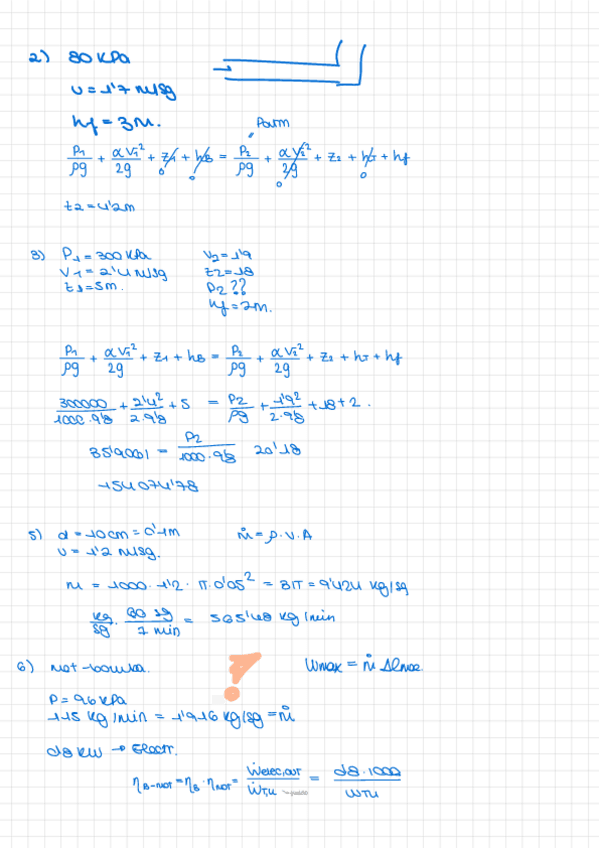 2) 80 kPa
v = 1'7 m/sg
hf = 3m.
Patm
P1/ρg + αV1²/2g + z1 + hB = P2/ρg + αV2²/2g + z2 + hT + hf
0 0 0 0
z2 = 4'2m
3) P1 = 300 kPa V2 = 1'9
V1 = 2'4 m/sg z2 = 18
z1 = 5m. P2 ??
hf = 2m.
P1/ρg + αV1²/2g + z1 + hB = P2/ρg + αV2²/2g + z2 + hT + hf
300000/1000·9'8 + 2'4²/2·9'8 + 5 = P2/ρg + 1'9²/2·9'8 + 18 + 2.
35'9061 = P2/1000·9'8 20'18
154074'78
5) d = 10cm = 0'1m ṁ = ρ·V·A
v = 1'2 m/sg.
m = 1000 · 1'2 · π·0'05² = 3π = 9'424 kg/sg
kg/sg · 60 sg/1 min = 565'48 kg/min
6) mot-bomba. Wmax = ṁ Δemec.
?
P = 96 kPa
115 kg/min = 1'916 kg/sg = ṁ
08 kW → Electr.
ηB-mot = ηB · ηmot = Ẇelec,out/ẆT,u = 08·1000/WTu